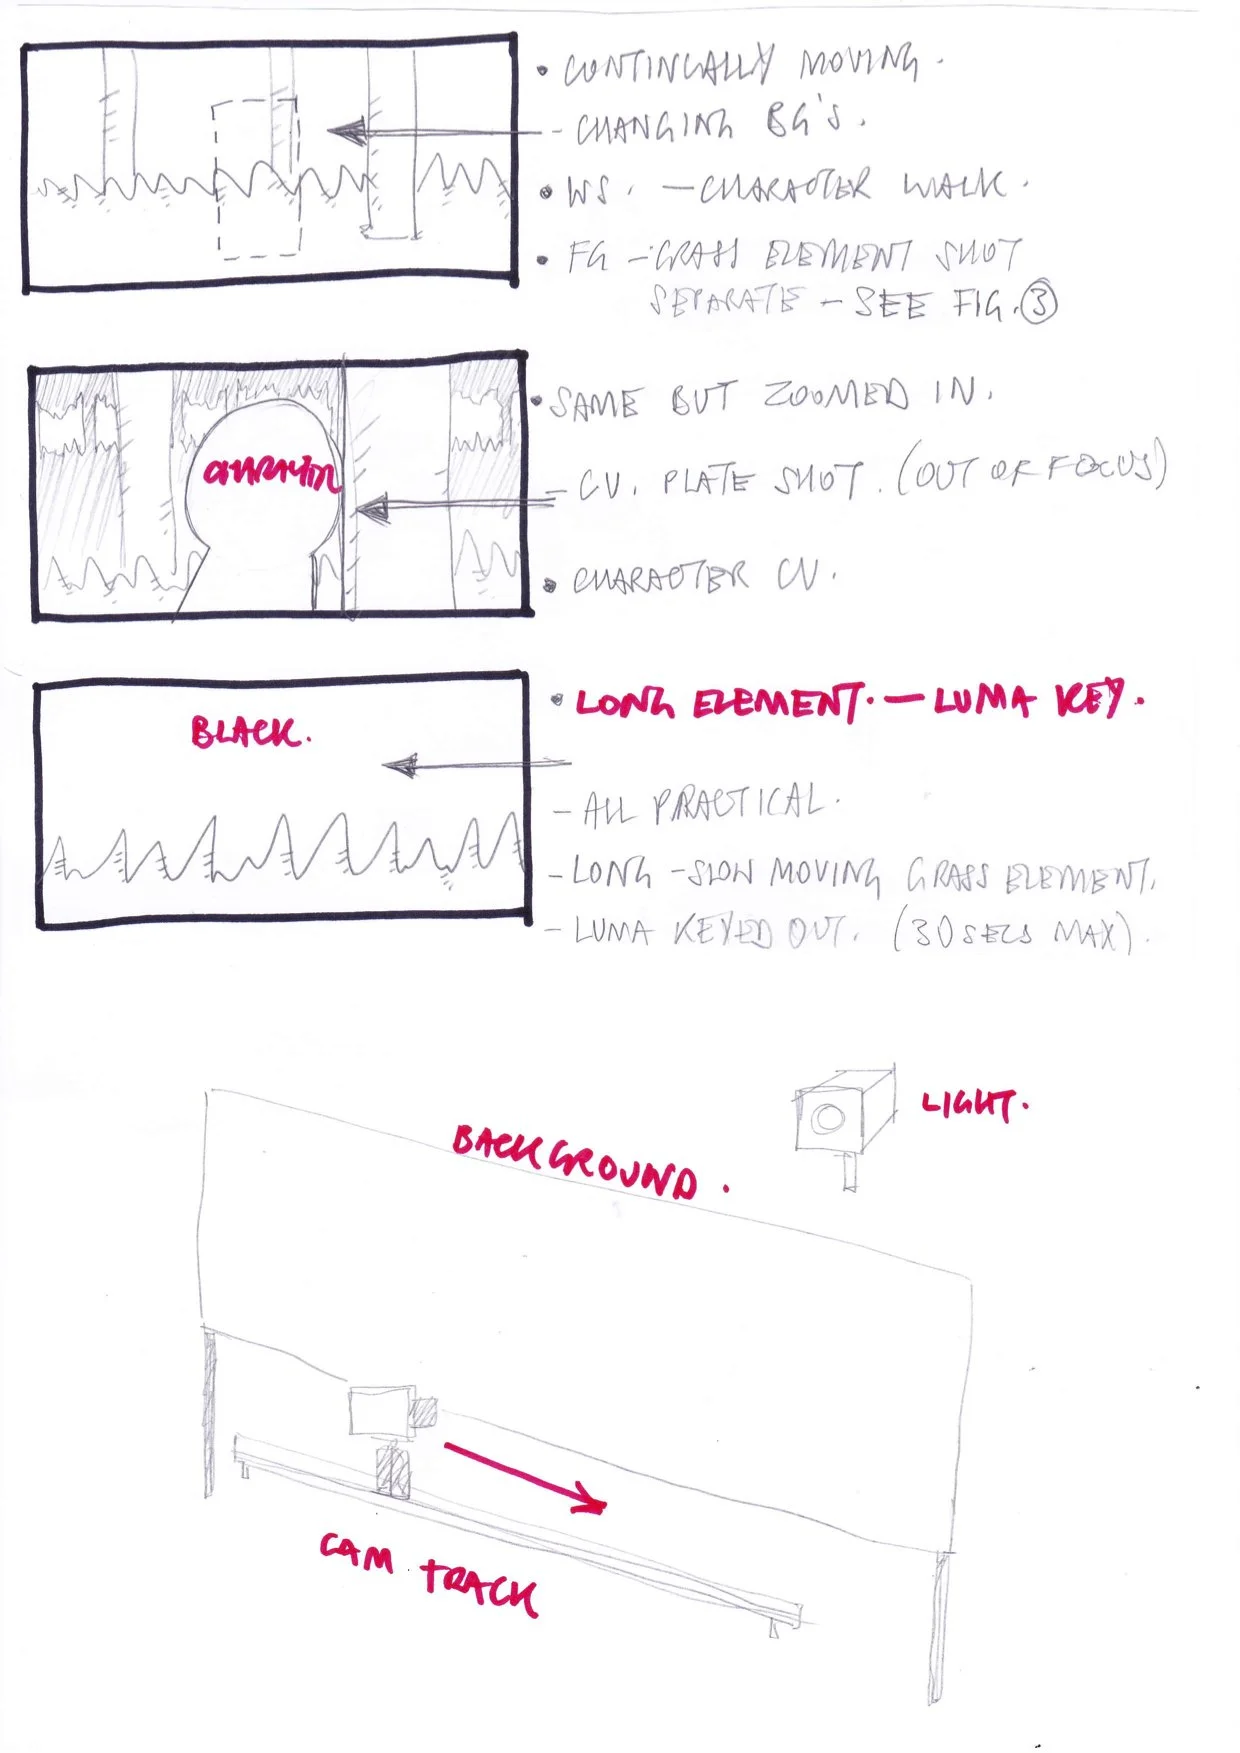 • CONTINUALLY MOVING.
- CHANGING BG'S.
• WS. — CHARACTER WALK.
• FG - GRASS ELEMENT SHOT
SEPARATE - SEE FIG. ③
CHARACTER
• SAME BUT ZOOMED IN.
- CU. PLATE SHOT. (OUT OF FOCUS)
• CHARACTER CU.
BLACK.
• LONG ELEMENT. — LUMA KEY.
- ALL PRACTICAL.
- LONG - SLOW MOVING GRASS ELEMENT.
- LUMA KEYED OUT. (30 SECS MAX).
LIGHT.
BACKGROUND.
CAM TRACK